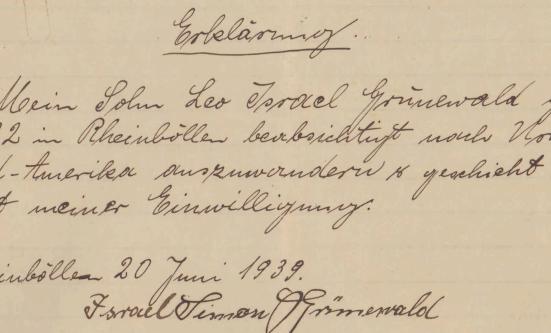 Erklärung.
Mein Sohn Leo Israel Grünewald
22 in Rheinböllen beabsichtigt nach
-Amerika auszuwandern & geschieht
meiner Einwilligung.
inböllen 20 Juni 1939.
Israel Simon Grünewald